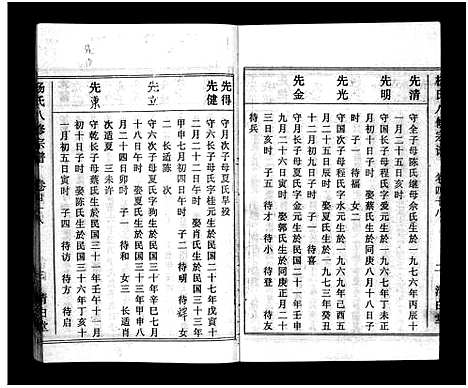 楊氏八修宗譜 卷四十八
二 清白堂
先清
守全子母陈氏继母余氏生於一九七六年丙辰十
一月二十五亥时
先明
守国长子母程氏字水元生於一九六七年
月初十日子时 娶 氏生於同庚八月十八日
时 子一 待福 女二
先光
守国次子母程氏字金元生於一九六九年
二月二十五日辰时 娶夏氏生於一九七三年癸丑
二月二十日子时 子一 待喜
先金
守六长子母夏氏字金元生於民国二十一年壬申
十一月初五日亥时 娶郭氏生於同庚正月二十
日子时 子三 待小 待登 待友
待兵
先得
守六次子母夏氏早殁
先健
守六长子母氏字桂元生於民国二十七年戊寅十
二月二十二日午时 娶肖氏生於民国三十三年
甲申七月初三日午时 子二 待明 待辉 女
二 长适陈 次
先立
守六次子母夏氏字狗生於民国三十年辛巳七月
二十八日子时 娶夏氏生於民国三十三年甲申
月二十四日卯时 子一 待和 女三 长适肖
次适夏 三未许
先東
守乾长子母蔡氏生於民国三十一年壬午十一月
初三日寅时 娶陈氏生於民国三十六年丁亥十
一月初五日寅时 子四 待访 待方 待启
楊氏八修宗譜 卷四十八
三 清白堂